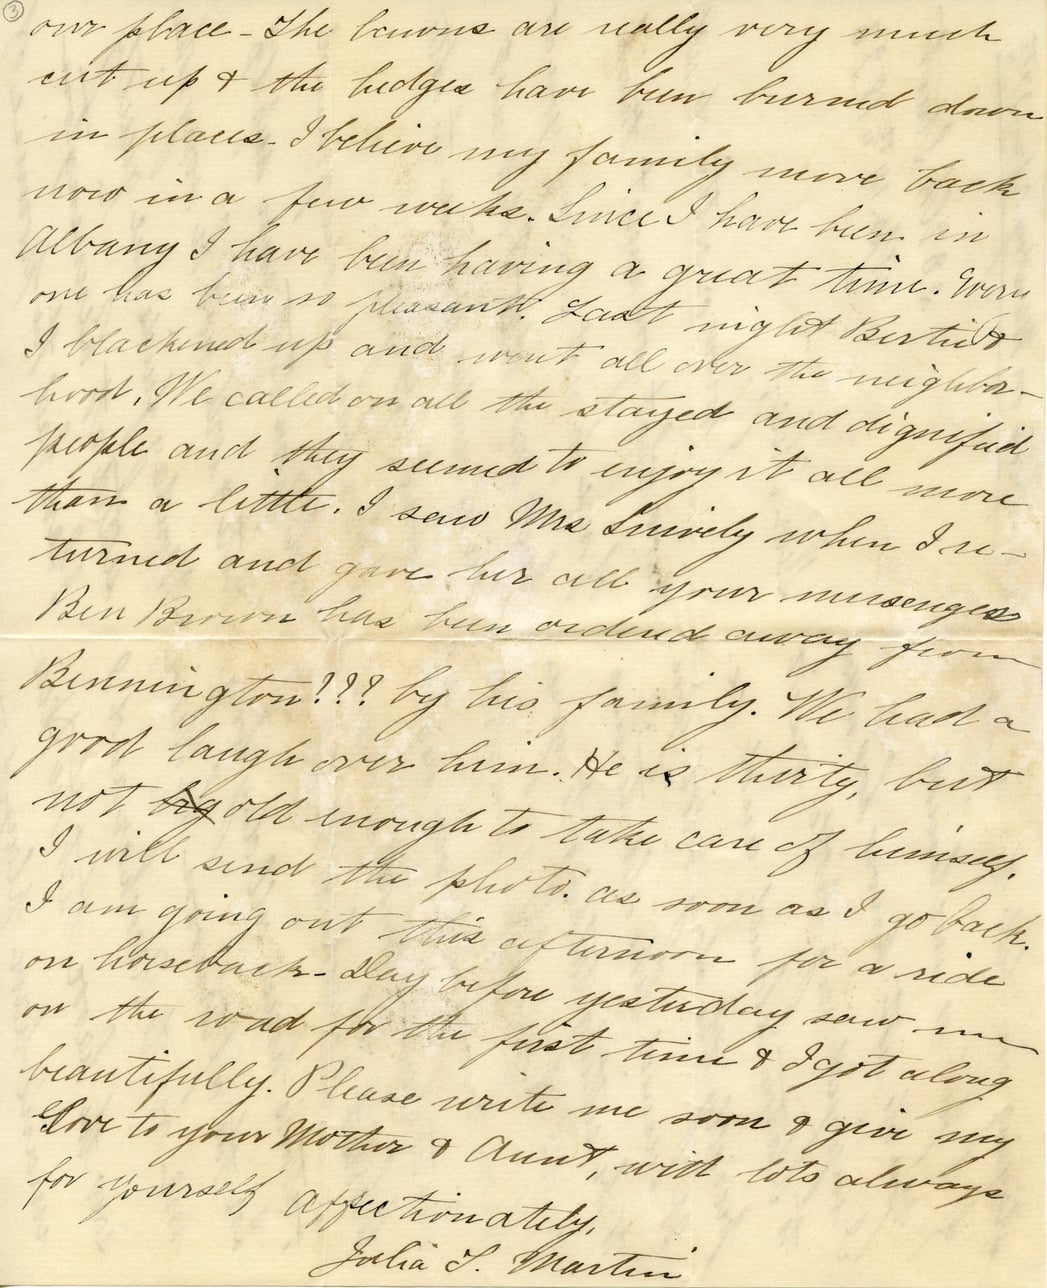 3
our place - The lawns are really very much
cut up & the hedges have been burned down
in places - I believe my family move back
now in a few weeks. Since I have been in
Albany I have been having a great time. Every
one has been so pleasant. Last night Bertie &
I blackened up and went all over the neighbor-
hood. We called on all the stayed and dignified
people and they seemed to enjoy it all more
than a little. I saw Mrs Snively when I re-
turned and gave her all your messenges
Ben Brown has been ordered away from
Bennington??? by his family. We had a
good laugh over him. He is thirty, but
not big old enough to take care of himself.
I will send the photo. as soon as I go back.
I am going out this afternoon for a ride
on horseback - Day before yesterday saw me
on the road for the first time & I got along
beautifully. Please write me soon & give my
Love to your Mother & Aunt, with lots always
for yourself Affectionately,
Julia S. Martin